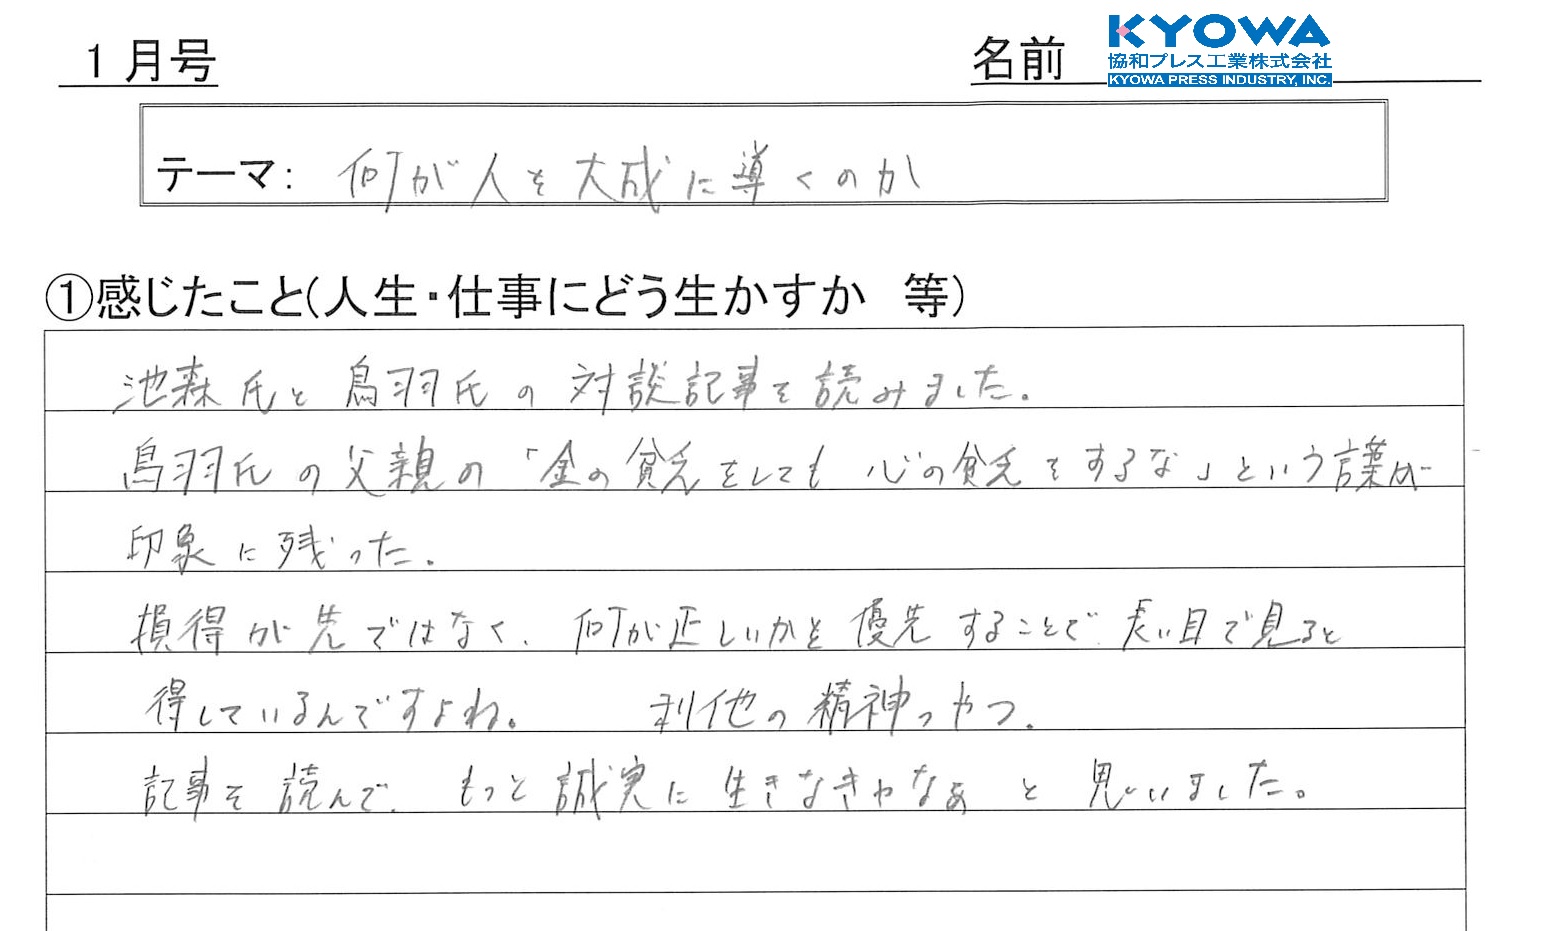 1 月号
名前
KYOWA
協和プレス工業株式会社
KYOWA PRESS INDUSTRY, INC.
テーマ: 何が人を大成に導くのか
①感じたこと(人生・仕事にどう生かすか 等)
池森氏と鳥羽氏の対談記事を読みました。
鳥羽氏の父親の「金の貧乏をしても心の貧乏をするな」という言葉が
印象に残った。
損得が先ではなく、何が正しいかを優先することで、長い目で見ると
得しているんですよね。 利他の精神っやつ。
記事を読んで、もっと誠実に生きなきゃなぁと思いました。